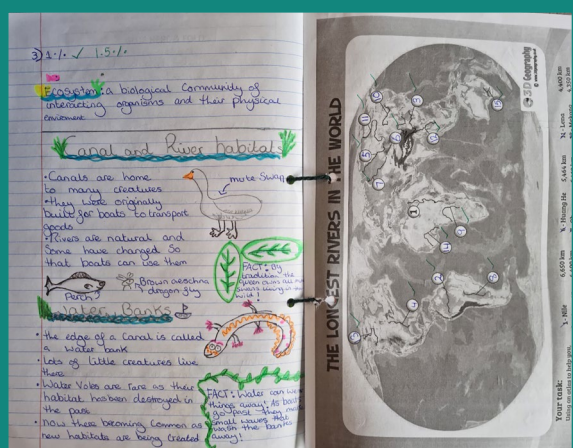 3) 1.% ✓ 1.5.%
Ecosystem: a biological Community of
interacting organisms and their physical
enviroment
Canal and River habitats
• Canals are home
to many creatures
• they were originally
built for boats to transport
goods
• Rivers are natural and
Some have changed So
that boats can use them
mute Swan
FACT: By
tradition the
queen owns all mute
swans living in the
wild!
Perch
Brown aeschna
dragon fly
Water Banks
• the edge of a Canal is called
a water bank
• Lots of little creatures live
there
• Water Voles are rare as their
habitat has been destroyed in
the past
• now there becoming Common as
new habitats are being created
FACT: Water can wash
things away! As boats
go past they make
Small waves that
wash the banks
away!
THE LONGEST RIVERS IN THE WORLD
3D Geography
Your task:
Using an atlas to help you,
1 - Nile
6,650 km
6 - Huang He
5,464 km
4,400 km
4,350 km